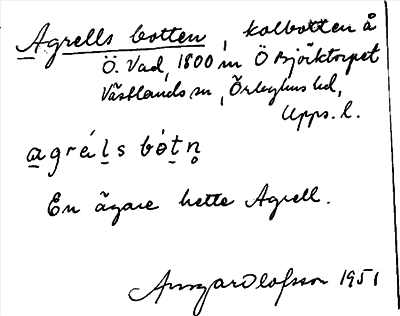 Agrells botten, kolbotten å
Ö. Vad, 1800 m Ö Björktorpet
Västlands sn, Örbyhus hd,
Upps. l.
agrél s bòtn̥
En ägare hette Agrell.
Ansgar Olofsson 1951